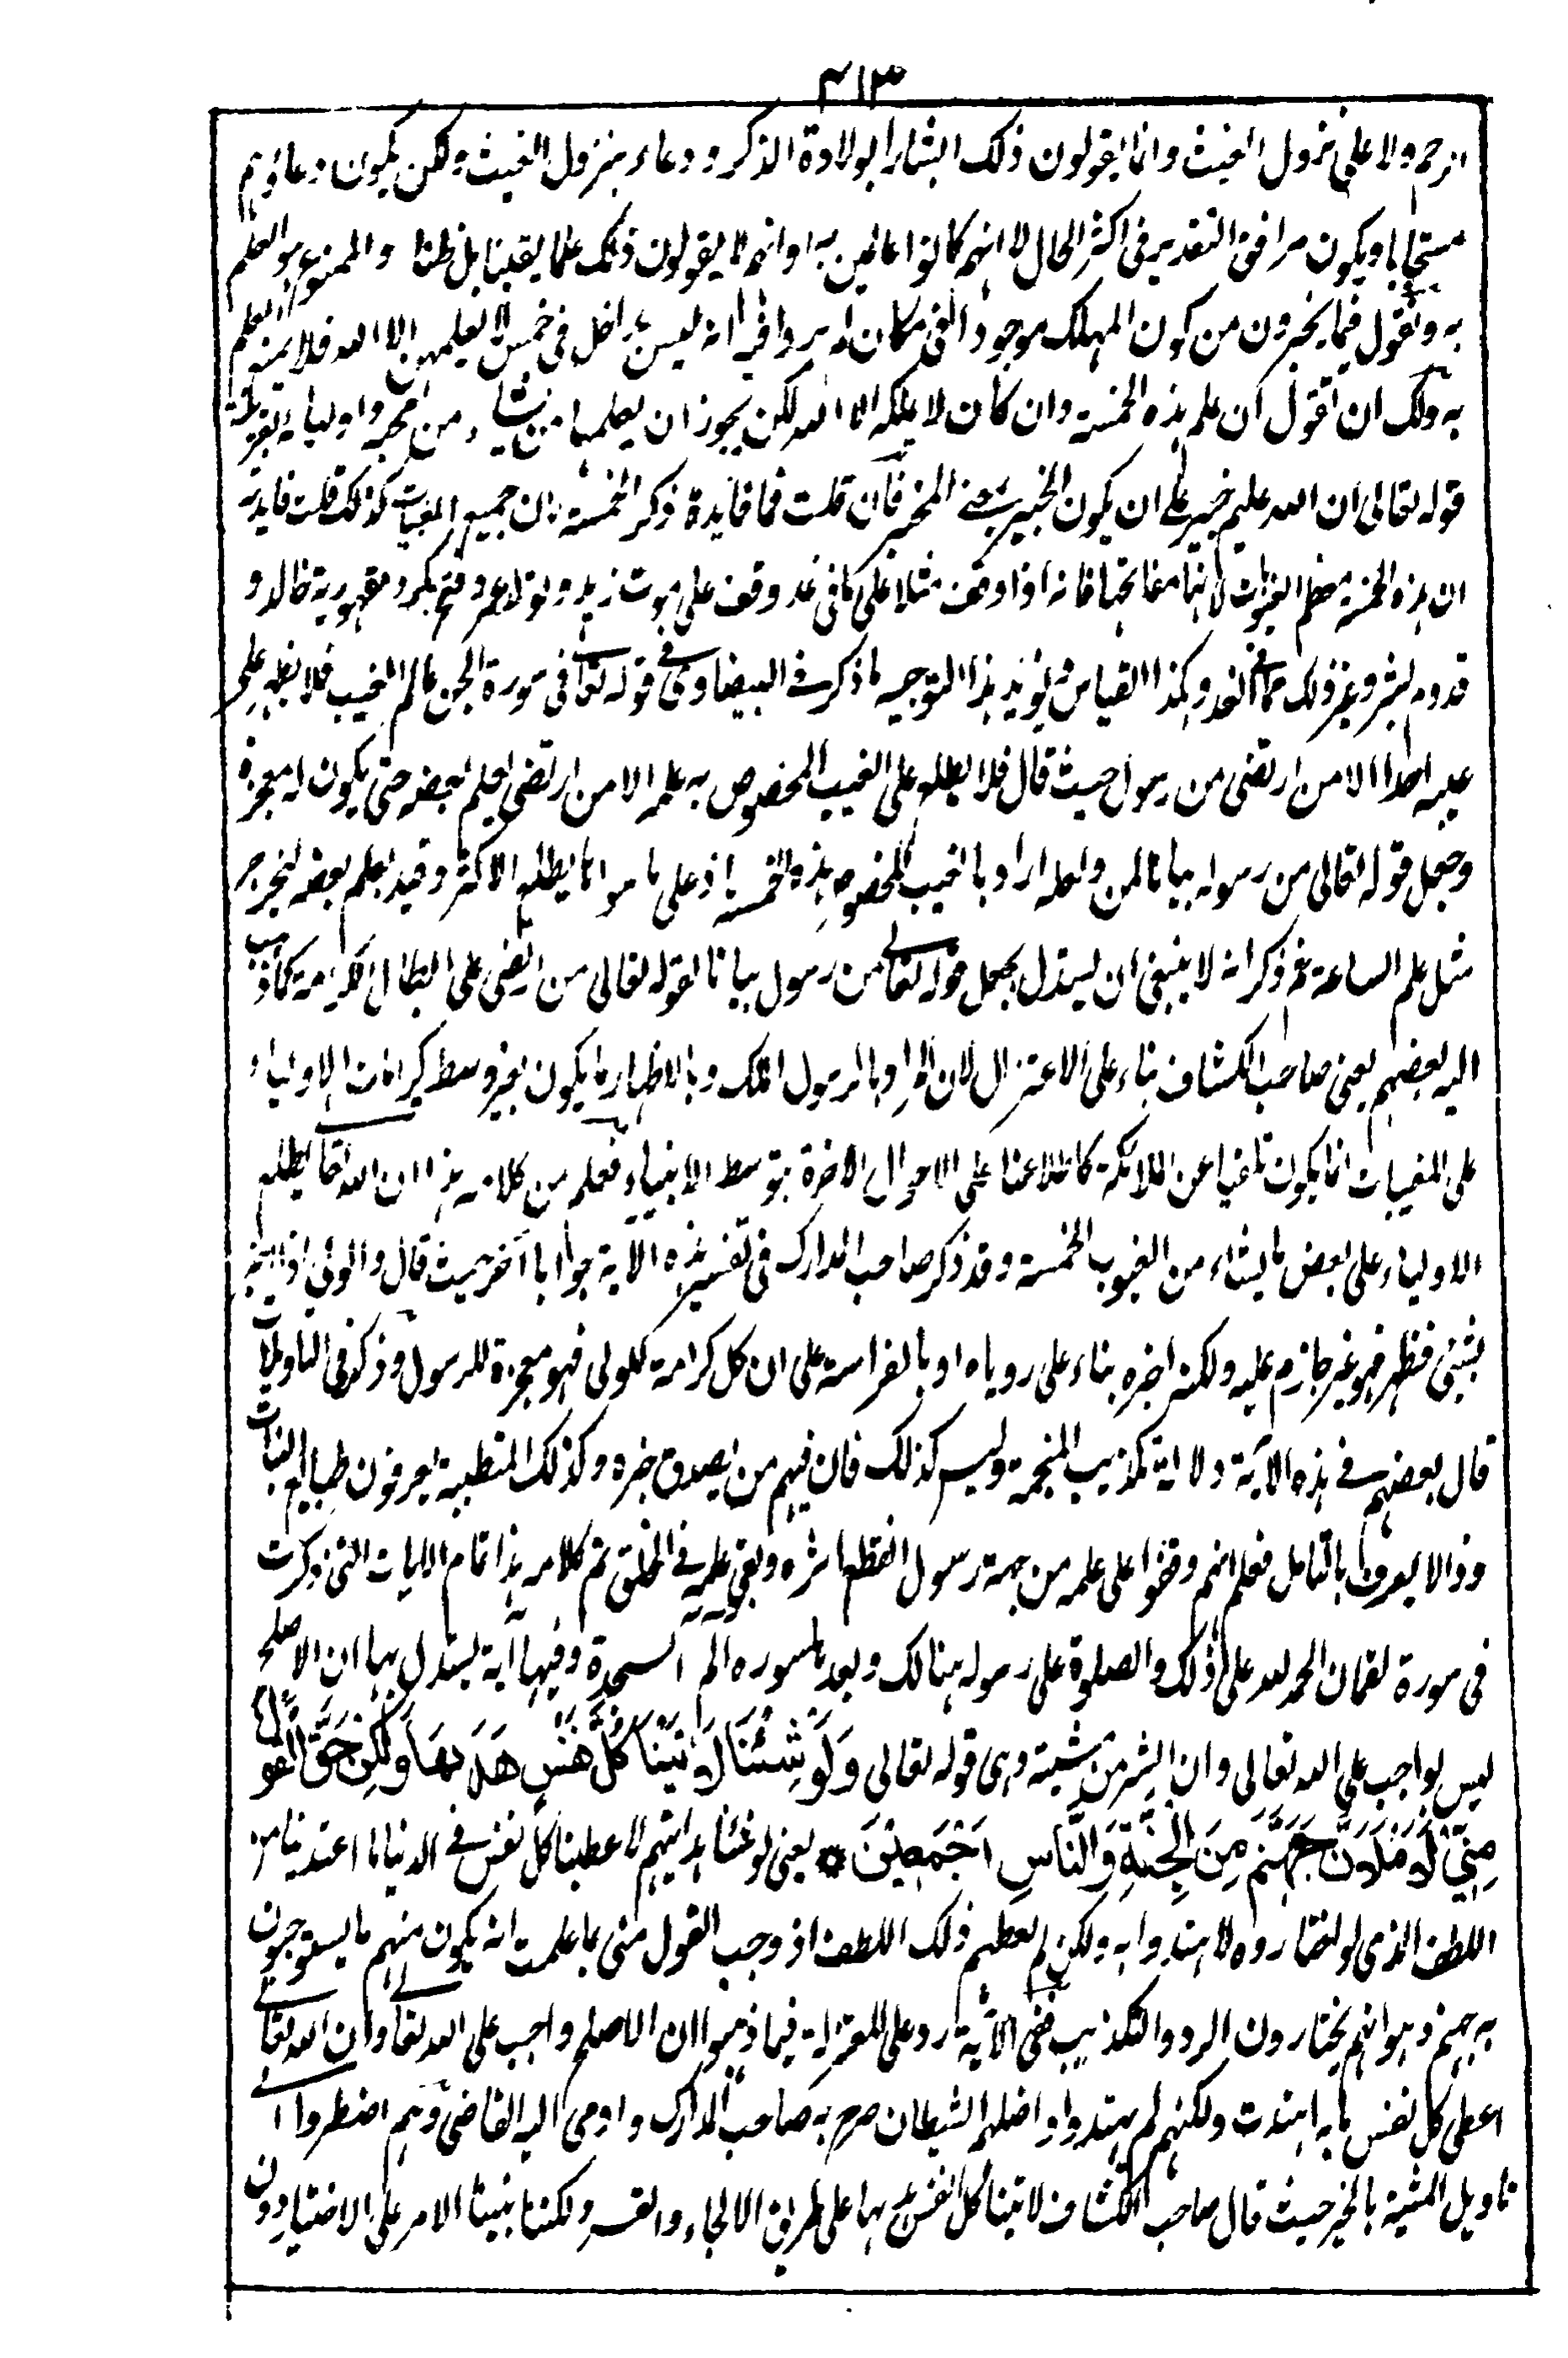 ٤١٣
الرحم ولا على نزول الغيث وانما يقولون ذلك البشارا بولادة الذكر ودعاء بنزول الغيث ولكن يكون دعاؤهم
مستجابا ويكون موافق التقدير فى اكثر الحال لا انهم كانوا عالمين به او انهم لا يقولون ذلك علما يقينا بل ظنا والممنوع هو العلم
به ونقول فيما يخبرون من كون المهلك موجودا فى مكان انه ليس بداخل فى خمس لا يعلمهن الا الله فلا يمنع العلم
به ولك ان تقول ان علم هذه الخمسة وان كان لا يملكه الا الله لكن يجوز ان يعلمها من يشاء من محبه واوليائه بقرينة
قوله تعالى ان الله عليم خبير على ان يكون الخبير بمعنى المخبر فان قلت فما فايدة ذكر الخمسة لان جميع المغيبات كذلك قلت فايدته
ان هذه الخمسة معظم الغيوبات لانها مفاتحها فانه اذا وقف مثلا على ما فى غد وقف على موت زيد وتولد عمرو وفتح بكر ومقهورية خالد و
قدوم بشر وغير ذلك مما فى الغد وهكذا القياس ويؤيد هذا التوجيه ما ذكر فى البيضاوى فى قوله تعالى فى سورة الجن عالم الغيب فلا يظهر على
غيبه احدا الا من ارتضى من رسول حيث قال فلا يطلع على الغيب المخصوص به علمه الا من ارتضى لعلم بعضه حتى يكون له معجزة
وجعل قوله تعالى من رسول بيانا لمن ولعله اراد بالغيب المخصوص هذه الخمسة اذ على ما سواها يطلع الاكثر وقيد بعلم بعضه ليخرج
مثل علم الساعة ثم ذكر انه لا ينبغى ان يستدل بجعل قوله تعالى من رسول بيانا لقوله تعالى من ارتضى على ابطال الكرامة كما ذهب
اليه بعضهم يعنى صاحب الكشاف بناء على الاعتزال لان المراد بالرسول الملك وبالاظهار ما يكون بغير وسط كرامات الاولياء
على المغيبات انما يكون تلقيا عن الملائكة كاطلاعنا على الاحوال الاخرة بتوسط الانبياء فعلم من كلامه هذا ان الله تعالى يطلع
الاولياء على بعض ما يشاء من الغيوب الخمسة وقد ذكر صاحب المدارك فى تفسير هذه الآية جوابا آخر حيث قال والولى اذا اخبر
بشئ فظهر فهو غير جازم عليه ولكنه اخبره بناء على روياه او بالفراسة على ان كل كرامة للولى فهو معجزة للرسول وذكر فى التاويلات
قال بعضهم فى هذه الآية دلالة تكذيب المنجمة وليس كذلك فان فيهم من يصدق خبره وكذلك المتطببة يعرفون طبايع النبات
وذا لا يعرف بالتامل فعلم انهم وقفوا على علمه من جهة رسول انقطع اثره وبقى علمه فى الخلق تم كلامه هذا تمام الايات التى ذكرت
فى سورة لقمان الحمد لله على ذلك والصلوة على رسوله هنالك وبعدها سورة الم السجدة وفيها آية يستدل بها ان الاصلح
ليس بواجب على الله تعالى وان الشر من مشيته وهى قوله تعالى وَلَوْ شِئْنَا لَاٰتَيْنَا كُلَّ نَفْسٍ هُدٰىهَا وَلٰكِنْ حَقَّ الْقَوْلُ
مِنِّيْ لَاَمْلَـَٔنَّ جَهَنَّمَ مِنَ الْجِنَّةِ وَالنَّاسِ اَجْمَعِيْنَ ۞ يعنى لو شئنا هدايتهم لاعطينا كل نفس فى الدنيا ما عندنا من
اللطف الذى لو اختاروه لاهتدوا به ولكن لم نعطهم ذلك اللطف اذ وجب القول منى بما علمت انه يكون منهم ما يستوجبون
به جهنم وهو انهم يختارون الرد والتكذيب ففى الآية رد على المعتزلة فيما ذهبوا ان الاصلح واجب على الله تعالى وان الله تعالى
اعطى كل نفس ما به اهتدت ولكنهم لم يهتدوا واضلهم الشيطان صرح به صاحب المدارك واومى اليه القاضى وهم اضطروا الى
تاويل المشية بالخير حيث قال صاحب الكشاف لاتينا كل نفس هديها على طريق الالجاء والقسر ولكنا بنينا الامر على الاختيار دون